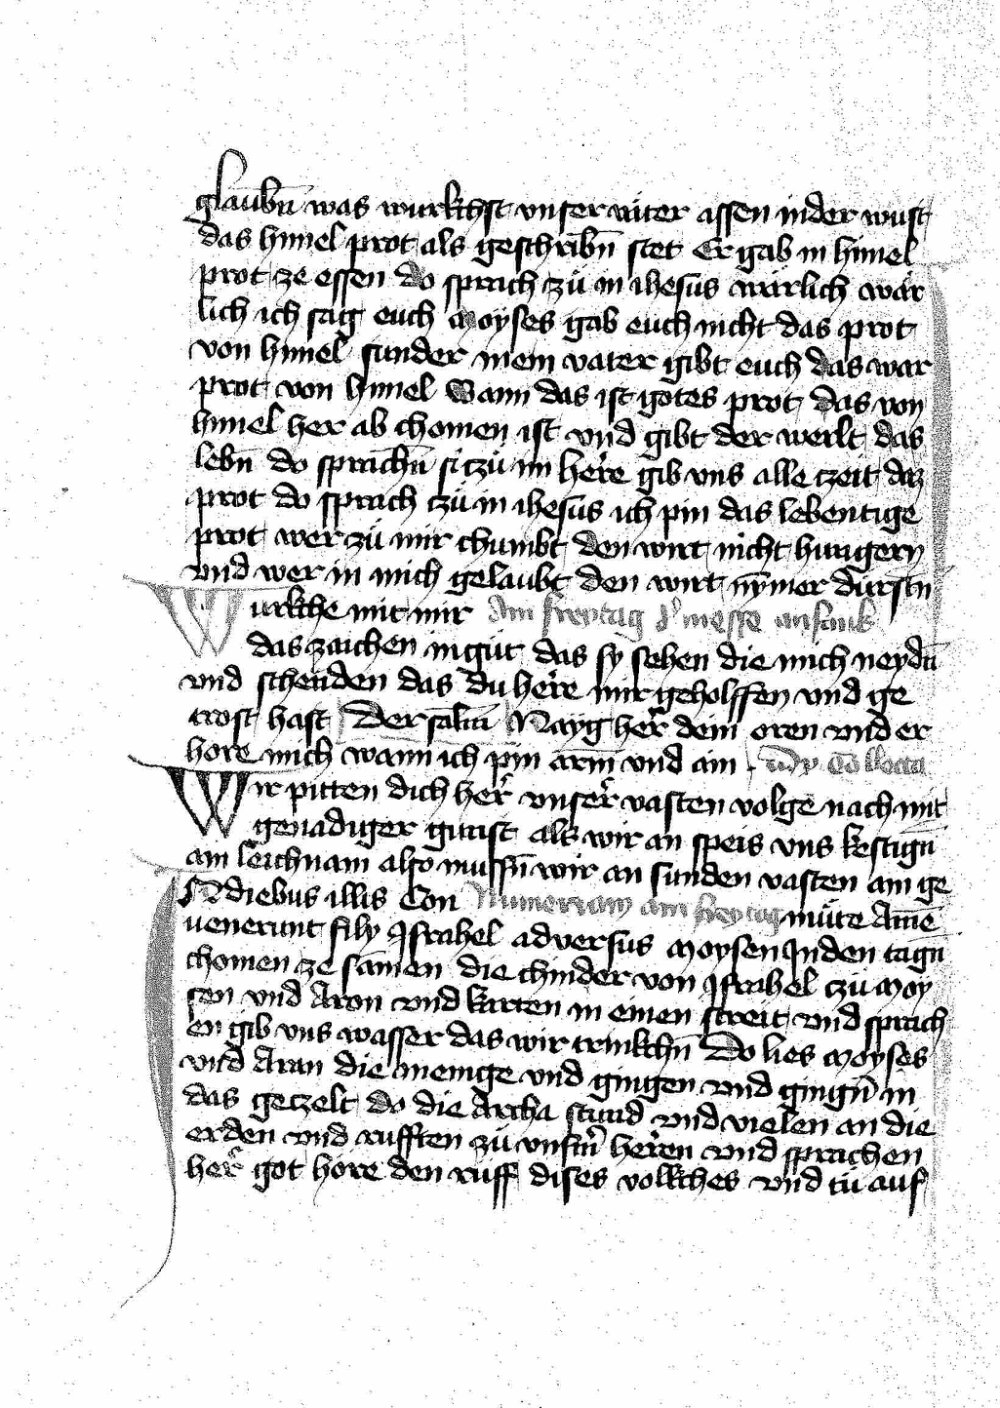 glaubn̄ was wurkchst vnser väter assen inder wüst
das himel prot als geschribn̄ stet Er gab in himel
prot ze essen do sprach zü in ihesus wärlich wär
lich ich sag euch Moyses gab euch nicht das prot
von himel sunder mein vater gibt euch das war
prot von himel Wann das ist gotes prot das von
himel her ab chomen ist vnd gibt der werlt das
lebn̄ do sprachn̄ si zü im herre gib vns alle zeit daz
prot do sprach zü in ihesus ich pin das lebentige
prot wer zü mir chumbt den wirt nicht hungern
vnd wer in mich gelaubt den wirt nȳmer dürstn̄
Würkche mit mir Am freytag d' messe anfank
das zaichen in güt das sy sehen die mich neydn̄
vnd schenden das du herre mir geholffen vnd ge
trost hast Der salm̄ Nayg her dein oren vnd er
hore mich wann ich pin arm̄ vnd ain Collecta
Wir pitten dich her' vnser' vasten volge nach mit
genadiger gunst als wir an speis vns kestign̄
am leichnam also mussn̄ wir an sunden vasten am ge
müte Amē
IN diebus illis Con Numeriam am freytag
uenerunt filij Israhel adversus Moysen In den tagn̄
chomen ze samen die chinder von Israhel zü Moy
sen vnd Aron vnd karten in einen streit vnd sprach
en gib vns wasser das wir trinkchn̄ Do lies Moyses
vnd Aran die menige vnd gingen vnd gingn̄ in
das geczelt do die Archa stund vnd vielen an die
erden vnd rufften zü vnsm̄ herren vnd sprachen
her' got hore den ruff dises volkches vnd tü auf